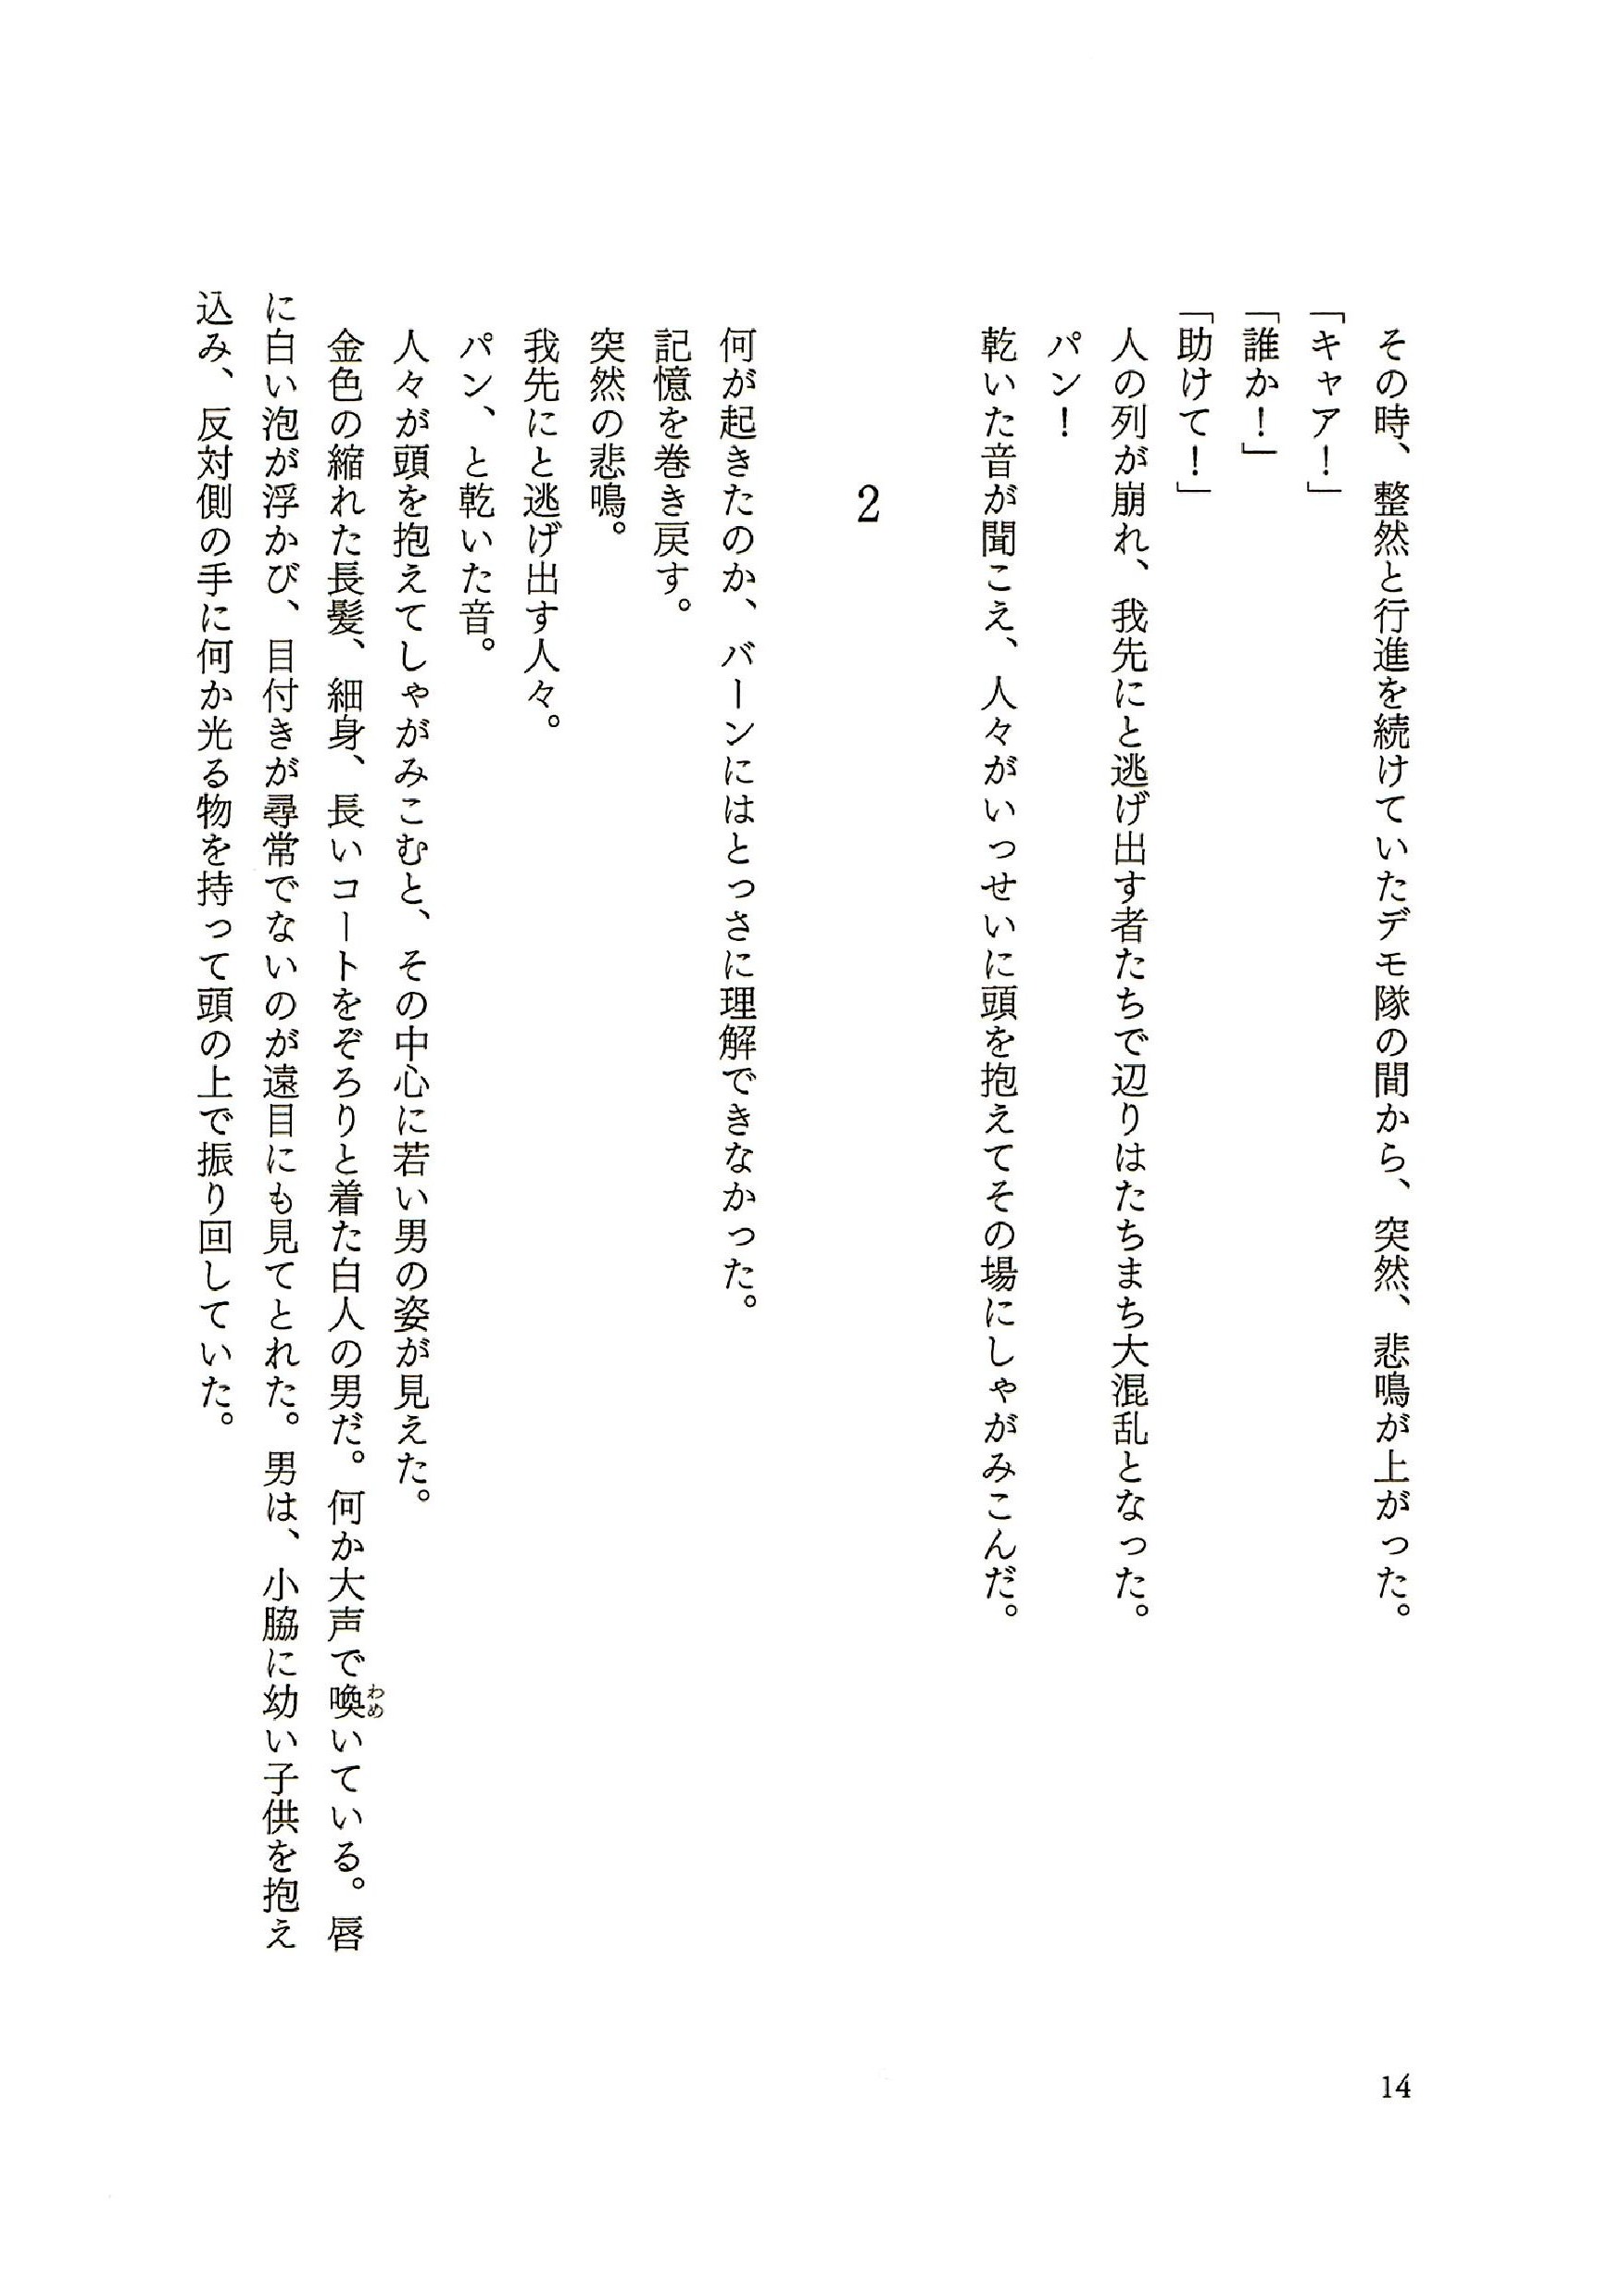 その時、整然と行進を続けていたデモ隊の間から、突然、悲鳴が上がった。
「キャア！」
「誰か！」
「助けて！」
人の列が崩れ、我先にと逃げ出す者たちで辺りはたちまち大混乱となった。
パン！
乾いた音が聞こえ、人々がいっせいに頭を抱えてその場にしゃがみこんだ。
2
何が起きたのか、バーンにはとっさに理解できなかった。
記憶を巻き戻す。
突然の悲鳴。
我先にと逃げ出す人々。
パン、と乾いた音。
人々が頭を抱えてしゃがみこむと、その中心に若い男の姿が見えた。
金色の縮れた長髪、細身、長いコートをぞろりと着た白人の男だ。何か大声で喚いている。唇
わめ
に白い泡が浮かび、目付きが尋常でないのが遠目にも見てとれた。男は、小脇に幼い子供を抱え
込み、反対側の手に何か光る物を持って頭の上で振り回していた。
14